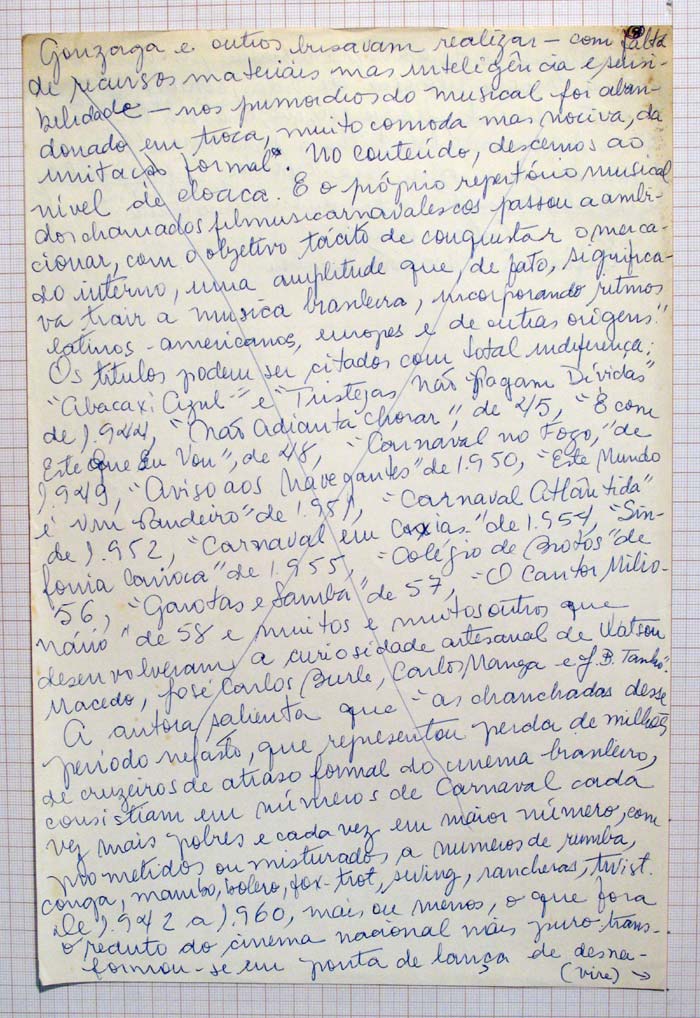 Gonzaga e outros busavam realizar – com falta
de recursos materiais mas inteligência e sensi-
bilidade – nos primordios do musical foi aban-
donado em troca, muito comoda mas nociva, da
imitação formal". No conteúdo, descemos ao
nível de cloaca. E o próprio repertório musical
dos chamados filmusicarnavalescos passou a ambi-
cionar, com o objetivo tácito de conquistar o merca-
do interno, uma amplitude que, de fato, significa-
va trair a musica brasileira, incorporando ritmos
latinos-americanos, europes e de outras origens."
Os títulos podem ser citados com total indiferença:
"Abacaxi Azul" e "Tristezas não Pagam Dívidas"
de 1.944, "Não Adianta Chorar", de 45, "É com
Este que Eu Vou", de 48, "Carnaval no Fogo," de
1.949, "Aviso aos Navegantes" de 1.950, "Este Mundo
é um Pandeiro" de 1.951, "Carnaval Atlântida"
de 1.952, "Carnaval em Caxias" de 1.954, "Sin-
fonia Carioca" de 1.955, "Colégio de Brotos" de
56, "Garotas e Samba" de 57, "O Cantor Milio-
nário" de 58 e muitos e muitos outros que
desenvolveram a curiosidade artesanal de Watson
Macedo, José Carlos Burle, Carlos Manga e J.B. Tanko".
A autora salienta que "as chanchadas desse
período nefasto, que representou perda de milhões
de cruzeiros de atraso formal do cinema brasileiro,
consistiam em números de Carnaval cada
vez mais pobres e cada vez em maior número, com
prometidos ou misturados a numeros de rumba,
conga, mambo, bolero, fox-trot, swing, rancheras, twist.
De 1.942 a 1.960, mais ou menos, o que fora
o reduto do cinema nacional mais puro trans-
formou-se em ponta de lança de desna-
(vire) →